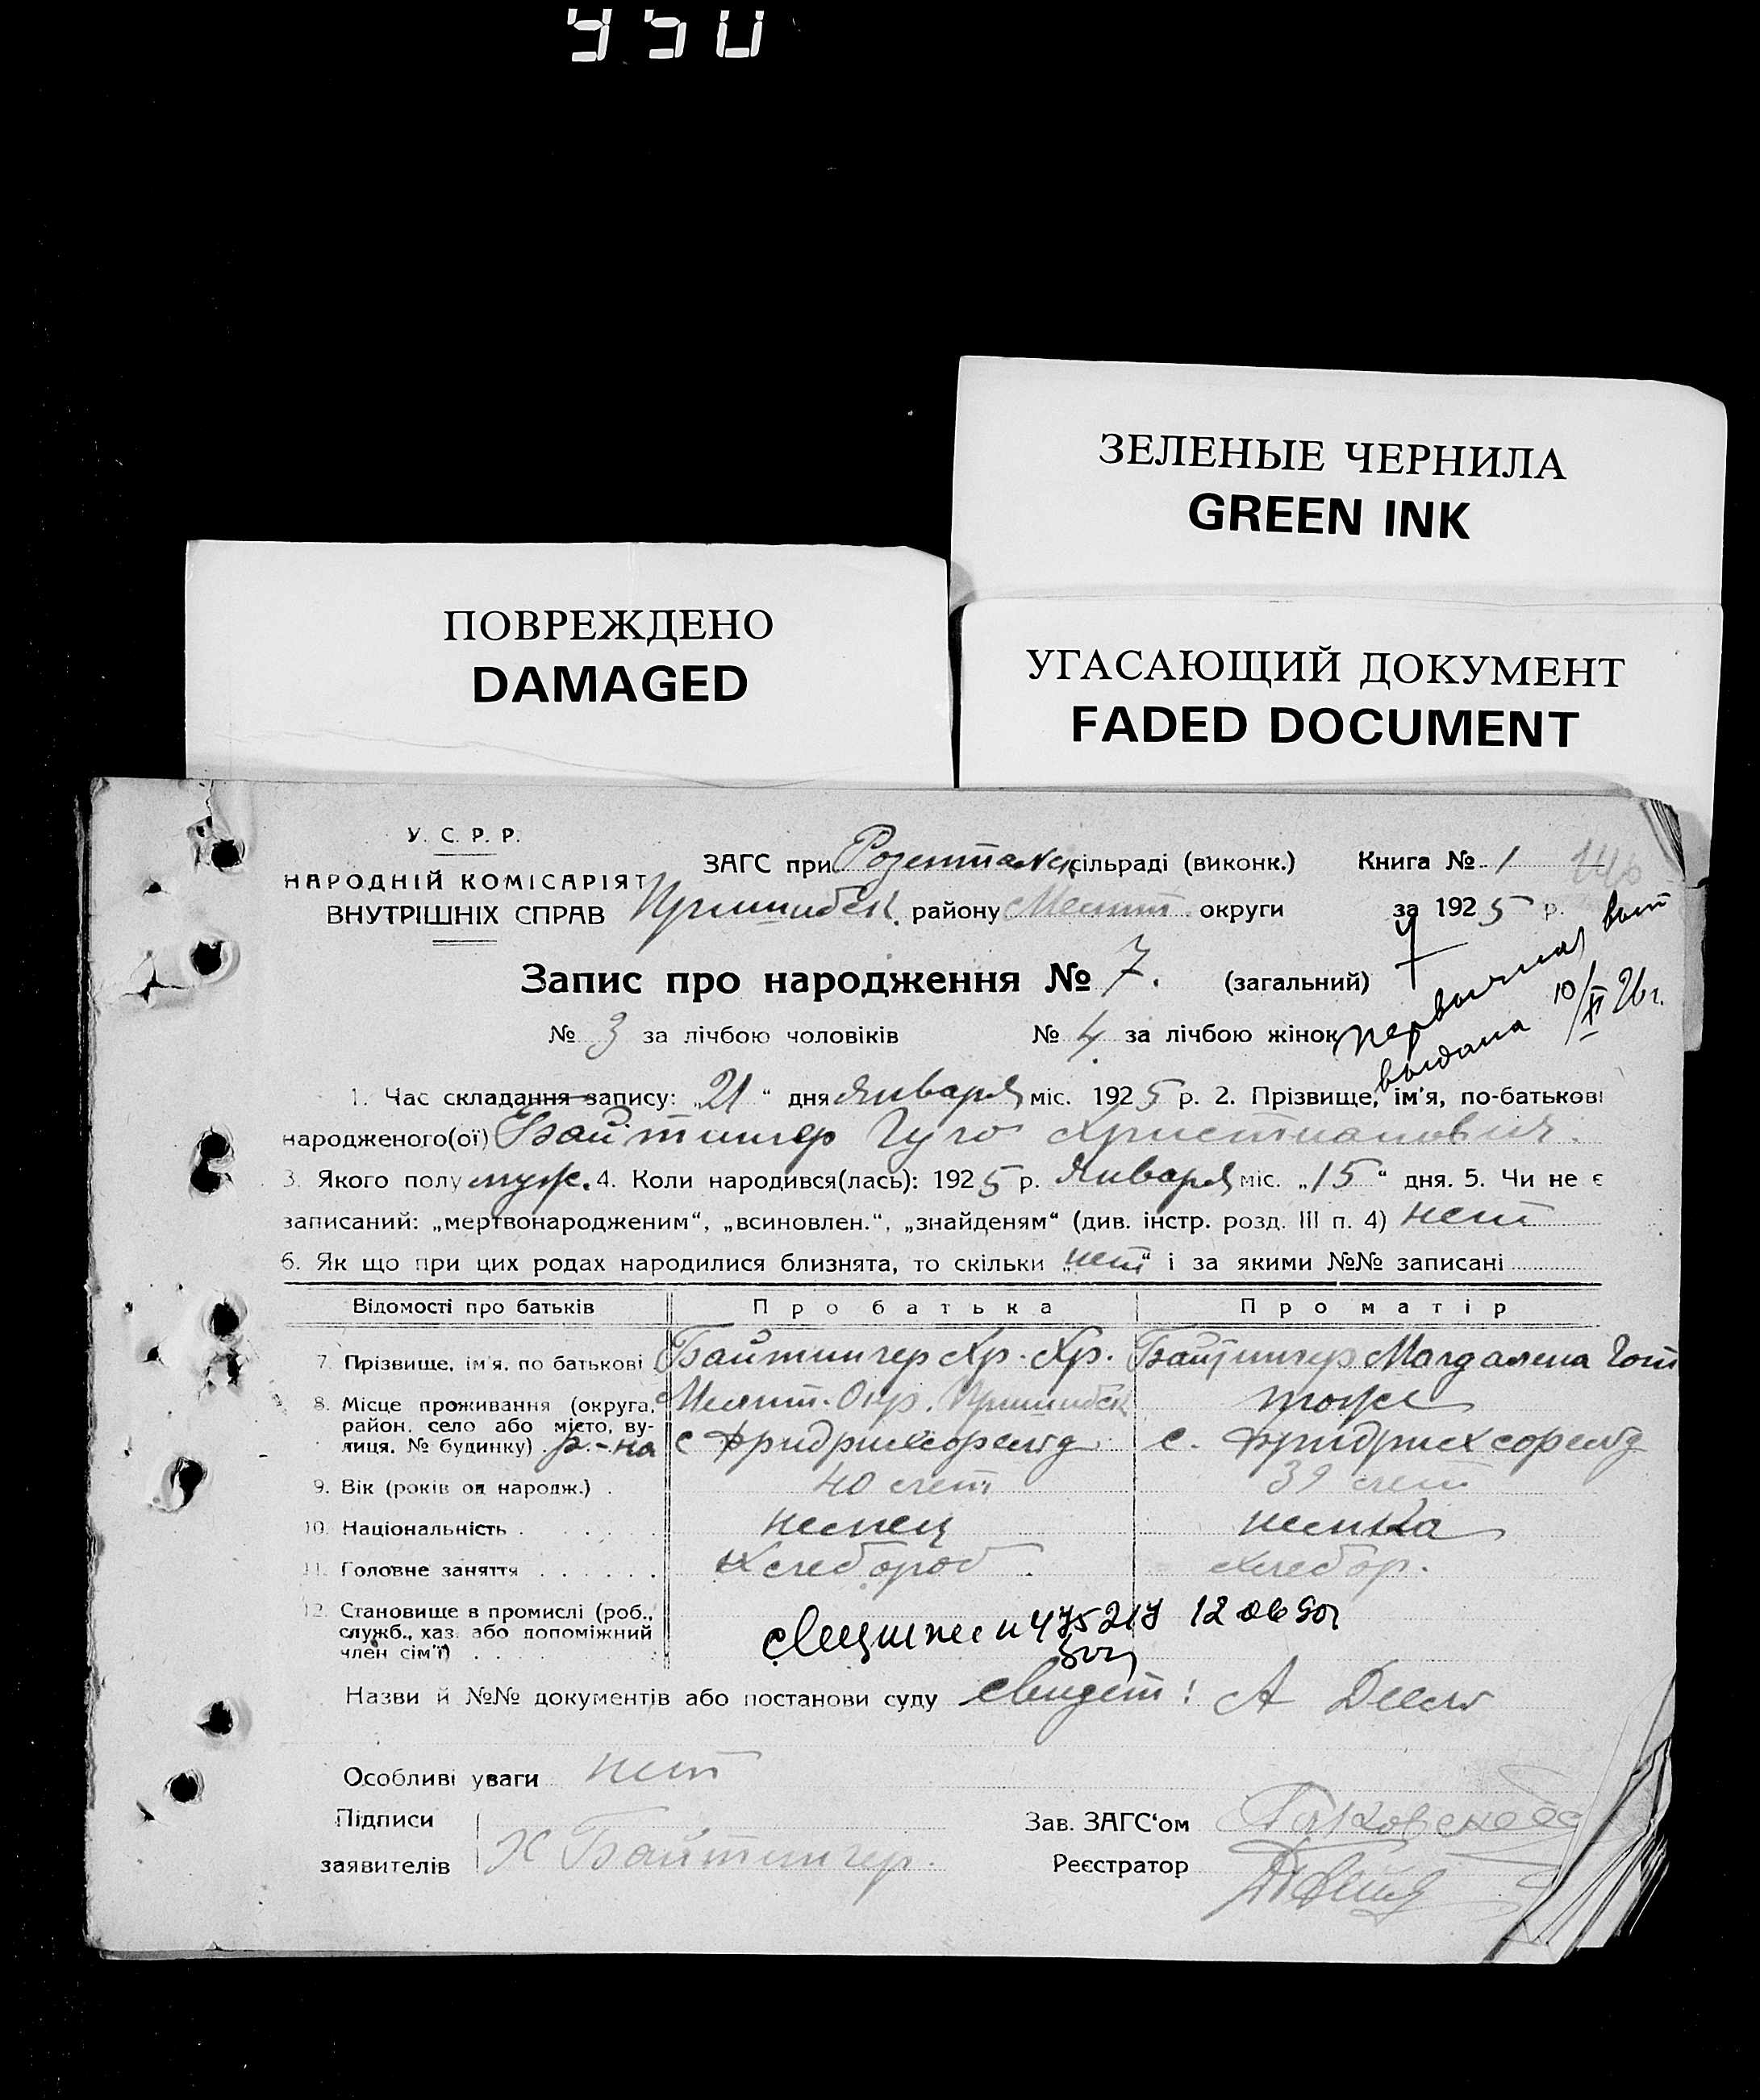 950
ЗЕЛЕНЫЕ ЧЕРНИЛА
GREEN INK
ПОВРЕЖДЕНО
DAMAGED
УГАСАЮЩИЙ ДОКУМЕНТ
FADED DOCUMENT
У. С. Р. Р.
НАРОДНІЙ КОМІСАРІЯТ
ВНУТРІШНІХ СПРАВ
ЗАГС при сільраді (виконк.) Книга № 1
Пришибск. району Мелит округи за 1925 р.
Запис про народження № 7. (загальний)
№ 3 за лічбою чоловіків № 4 за лічбою жінок
первичная
выдана 10/XI 26 г.
1. Час складання запису: „21“ дня Января міс. 1925 р. 2. Прізвище, ім'я, по-батькові
народженого(ої) Байтингер Гуго Христианович.
3. Якого полу муж. 4. Коли народився(лась): 1925 р. Января міс. „15“ дня. 5. Чи не є
записаний: „мертвонародженим“, „всиновлен.“, „знайденям“ (див. інстр. розд. III п. 4) нет
6. Як що при цих родах народилися близнята, то скільки „нет“ і за якими №№ записані
Відомості про батьків Про батька Про матір
7. Прізвище, ім'я, по батькові Байтингер Хр. Хр. Байтингер Магдалена Гот
8. Місце проживання (округа, Мелит. Окр. Пришибск тоже
район, село або місто, ву-
лиця, № будинку) р-на с Фридрихсфельд с. Фридрихсфельд
9. Вік (років од народж.) . 40 лет 39 лет
10. Національність . немец немка
11. Головне заняття . хлебороб . хлебор.
12. Становище в промислі (роб.,
служб., хаз. або допоміжний
член сім'ї) .
Назви й №№ документів або постанови суду свидет: А
Особливі уваги нет
Підписи
заявителів Х Байтингер.
Зав. ЗАГС'ом
Реєстратор